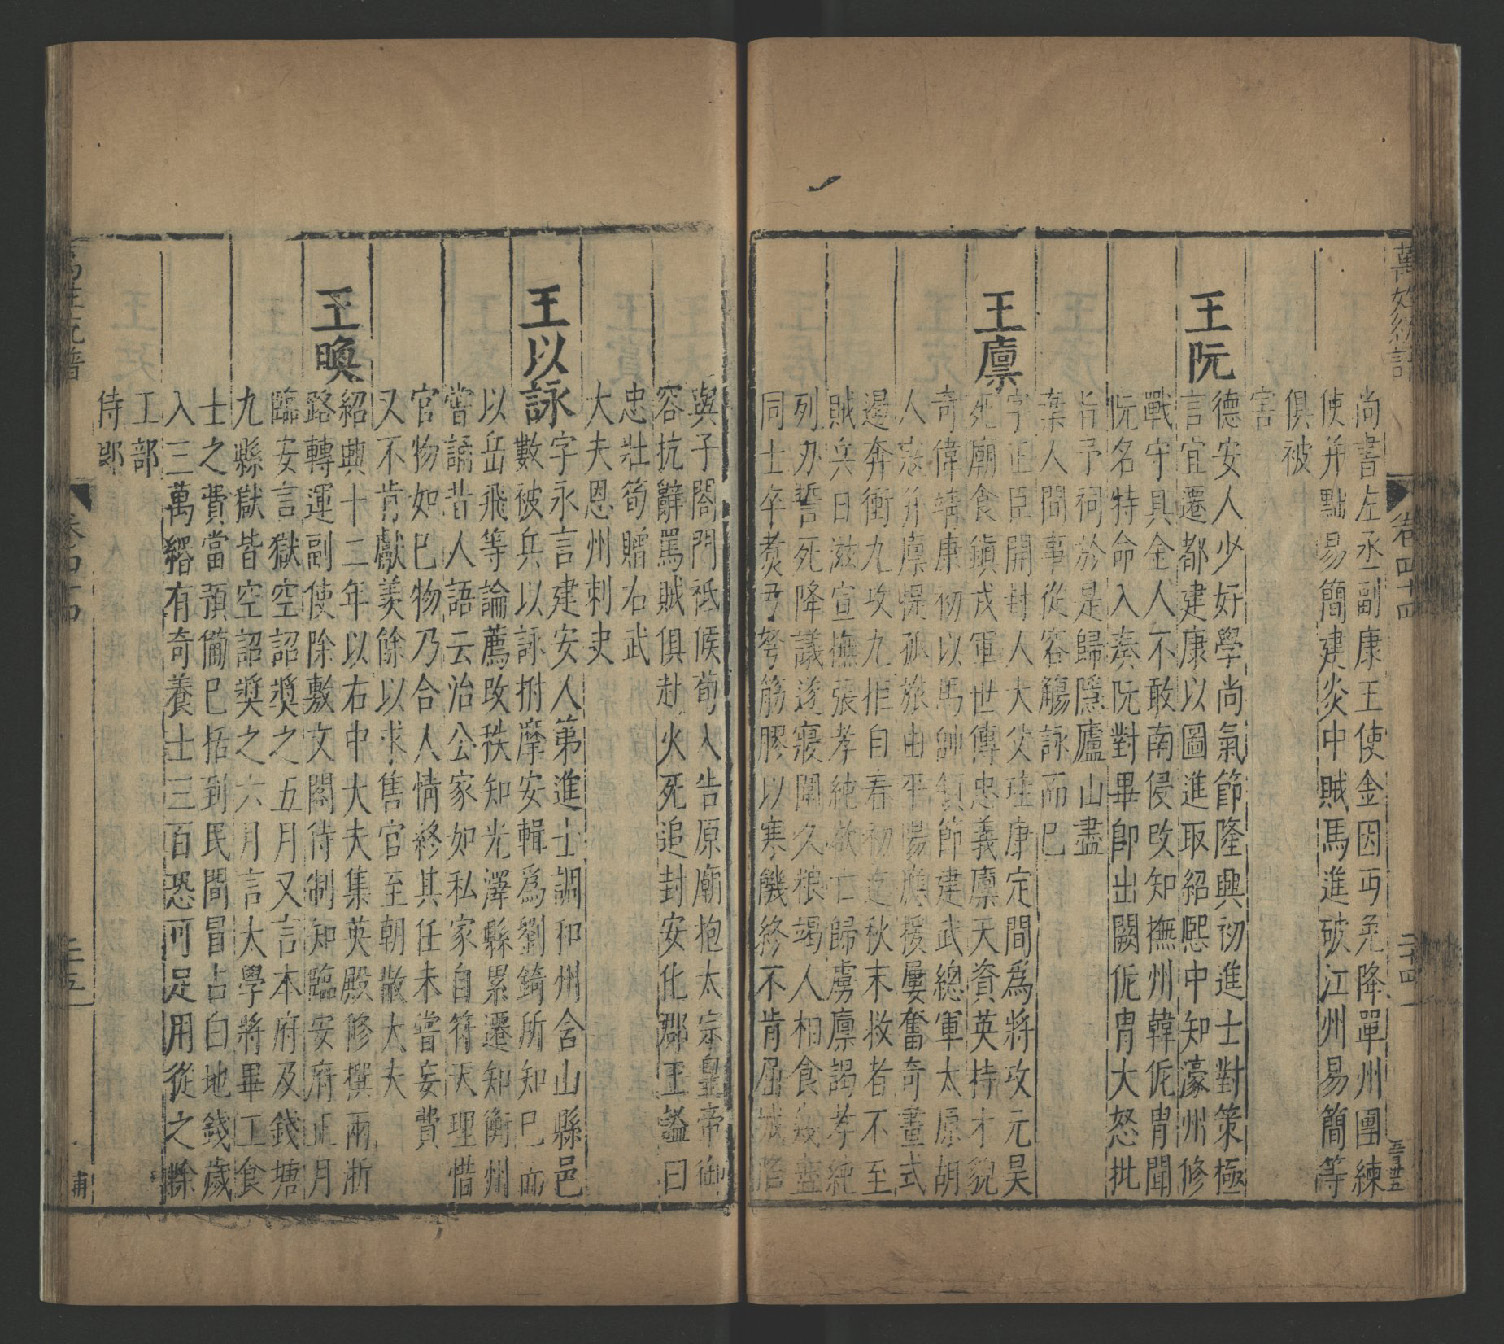 萬姓統譜
卷四十四
二十四
五百廿五
尚書左丞副康王使金因丐免降單州團練
使并點易簡建炎中賊馬進破江州易簡等
俱被
害
王阮
德安人少好學尚氣節隆興初進士對策極
言宜遷都建康以圖進取紹熙中知濠州修
戰守具金人不敢南侵改知撫州韓侂冑聞
阮名特命入奏阮對畢即出闕侂冑大怒批
旨予祠於是歸隱廬山盡
棄人間事從容觴詠而已
王稟
字正臣開封人大父珪康定間爲將攻元昊
死廟食鎮戎軍世傳忠義稟天資英持才貌
奇偉靖康初以馬帥領節建武總軍太原胡
人宗弁稟提孤旅由平陽應援屢奮奇畫式
遏奔衝九攻九拒自春初迄秋末救者不至
賊兵日滋宣撫張孝純欲亡歸虜稟謁孝純
列刀誓死降議遂寢圍久粮竭人相食幾盡
同士卒煮弓弩筋膠以寒饑終不肯屈城陷
與子閤門祗候荀人告原廟抱太宗皇帝御
容抗辭罵賊俱赴火死追封安化郡王謚曰
忠壯荀贈右武
大夫恩州刺史
王以詠
字永言建安人第進士調和州含山縣邑
數被兵以詠拊摩安輯爲劉錡所知已而
以岳飛等論薦改秩知光澤縣累遷知衡州
嘗誦昔人語云治公家如私家自符天理惜
官物如已物乃合人情終其任未嘗妄費
又不肯獻羡餘以求售官至朝散大夫
王㬇
紹興十二年以右中大夫集英殿修撰兩浙
路轉運副使除敷文閣待制知臨安府正月
臨安言獄空詔獎之五月又言本府及錢塘
九縣獄皆空詔獎之六月言大學將畢工食
士之費當預備已括到民間冒占白地錢歲
入三萬緡有奇養士三百恐可足用從之除
工部
侍郎
萬姓統譜
卷四十四
二十五
甫